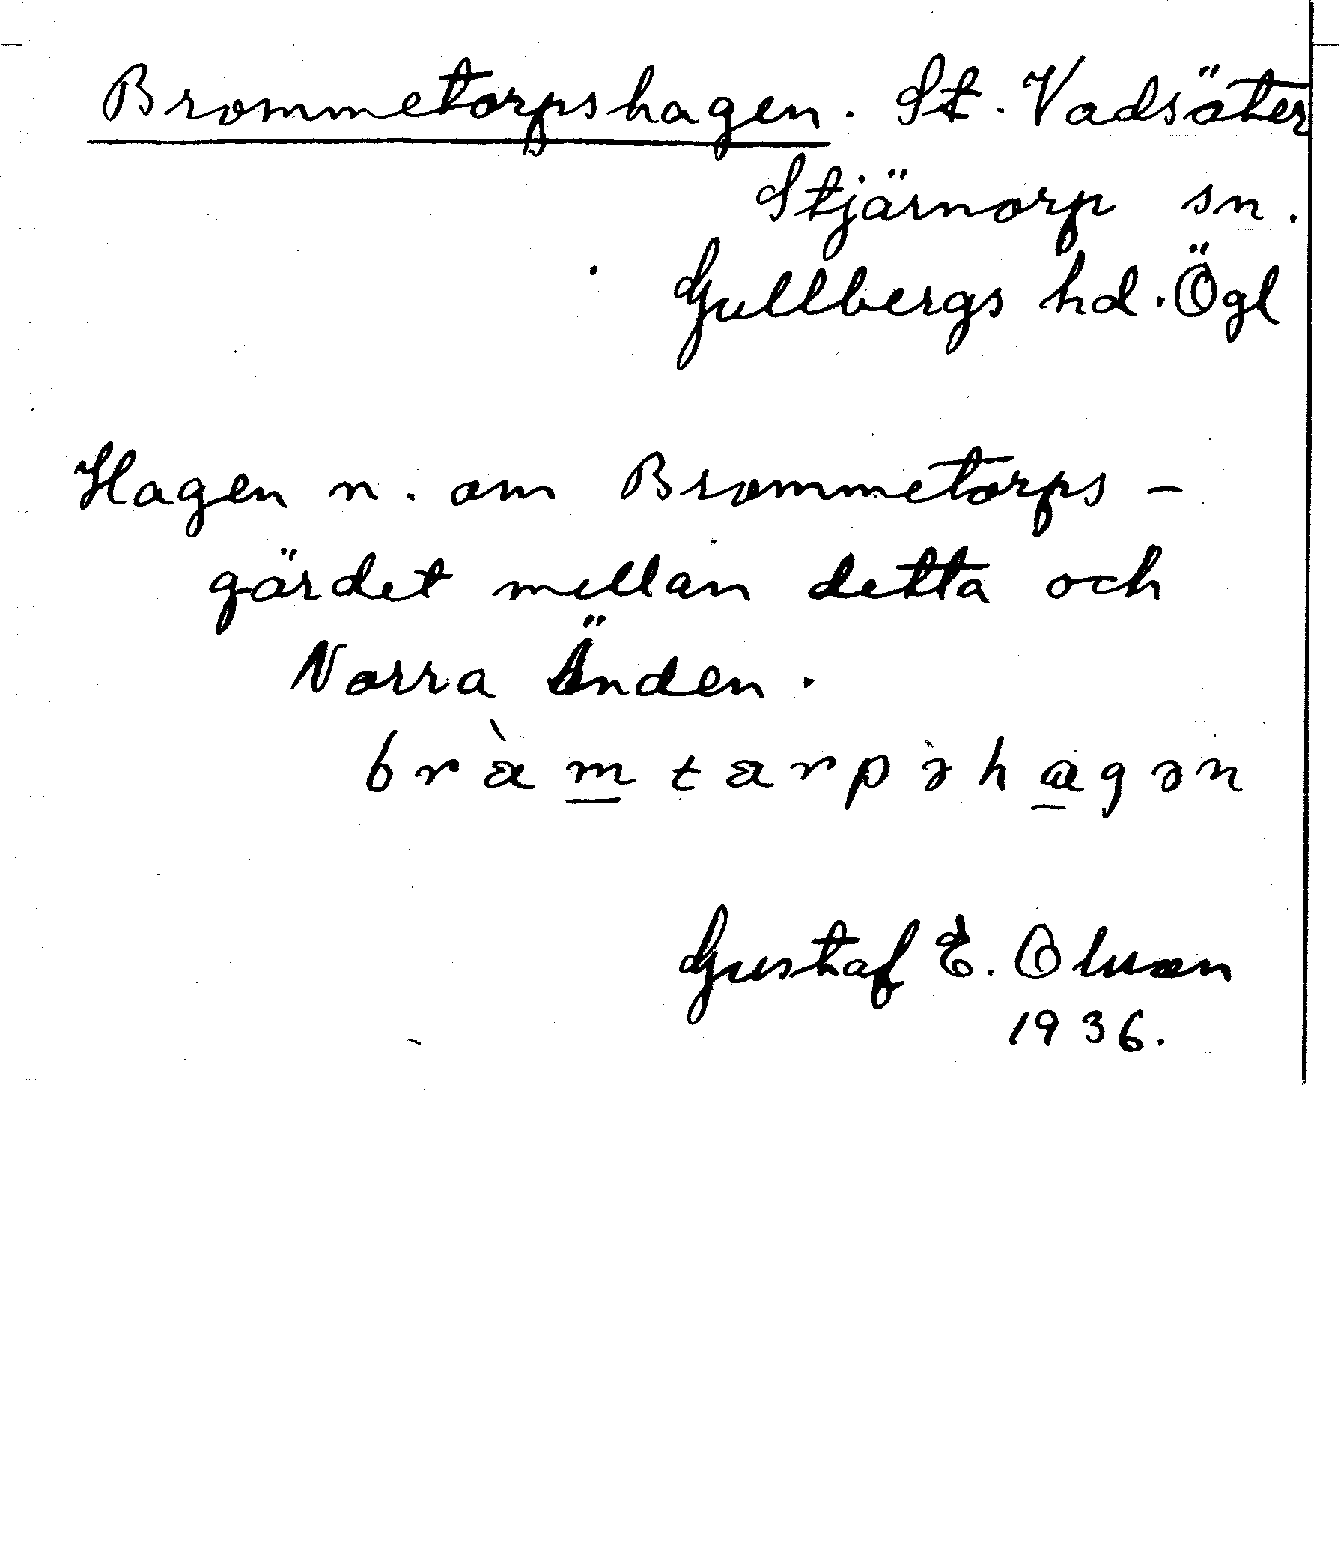 Brommetorpshagen. St. Vadsäter
Stjärnorp sn.
Gullbergs hd. Ögl
Hagen n. om Brommetorps-
gärdet mellan detta och
Norra Änden.
Gustaf E. Olsson
1936.